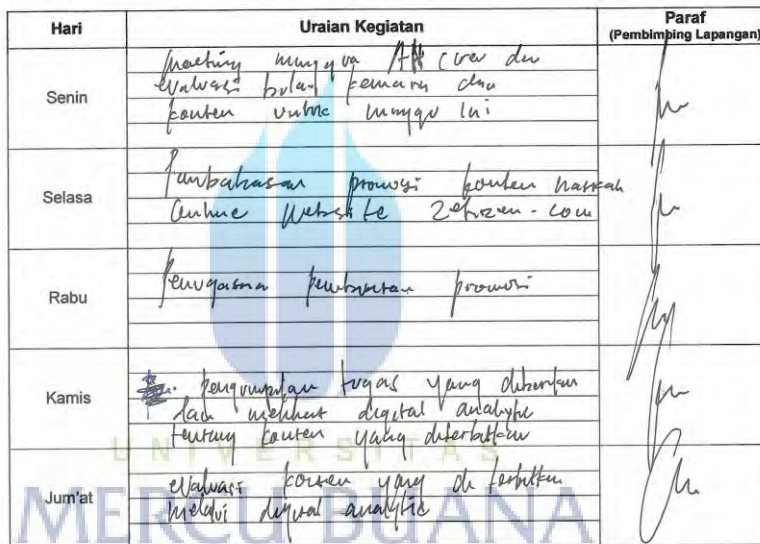 Hari
Uraian Kegiatan
Paraf
(Pembimbing Lapangan)
Senin
meeting minggua cover dan
evaluasi bulan kemarin dan
konten untuk minggu ini
Selasa
Pembahasan promosi konten naskah
Online Website Zetizen.com
Rabu
Penugasan pembuatan promosi
Kamis
pengumpulan tugas yang diberikan
dan melihat digital analytic
tentang konten yang diterbitkan
UNIVERSITAS
Jum'at
evaluasi konten yang di terbitkan
melalui digital analytic
MERCU BUANA